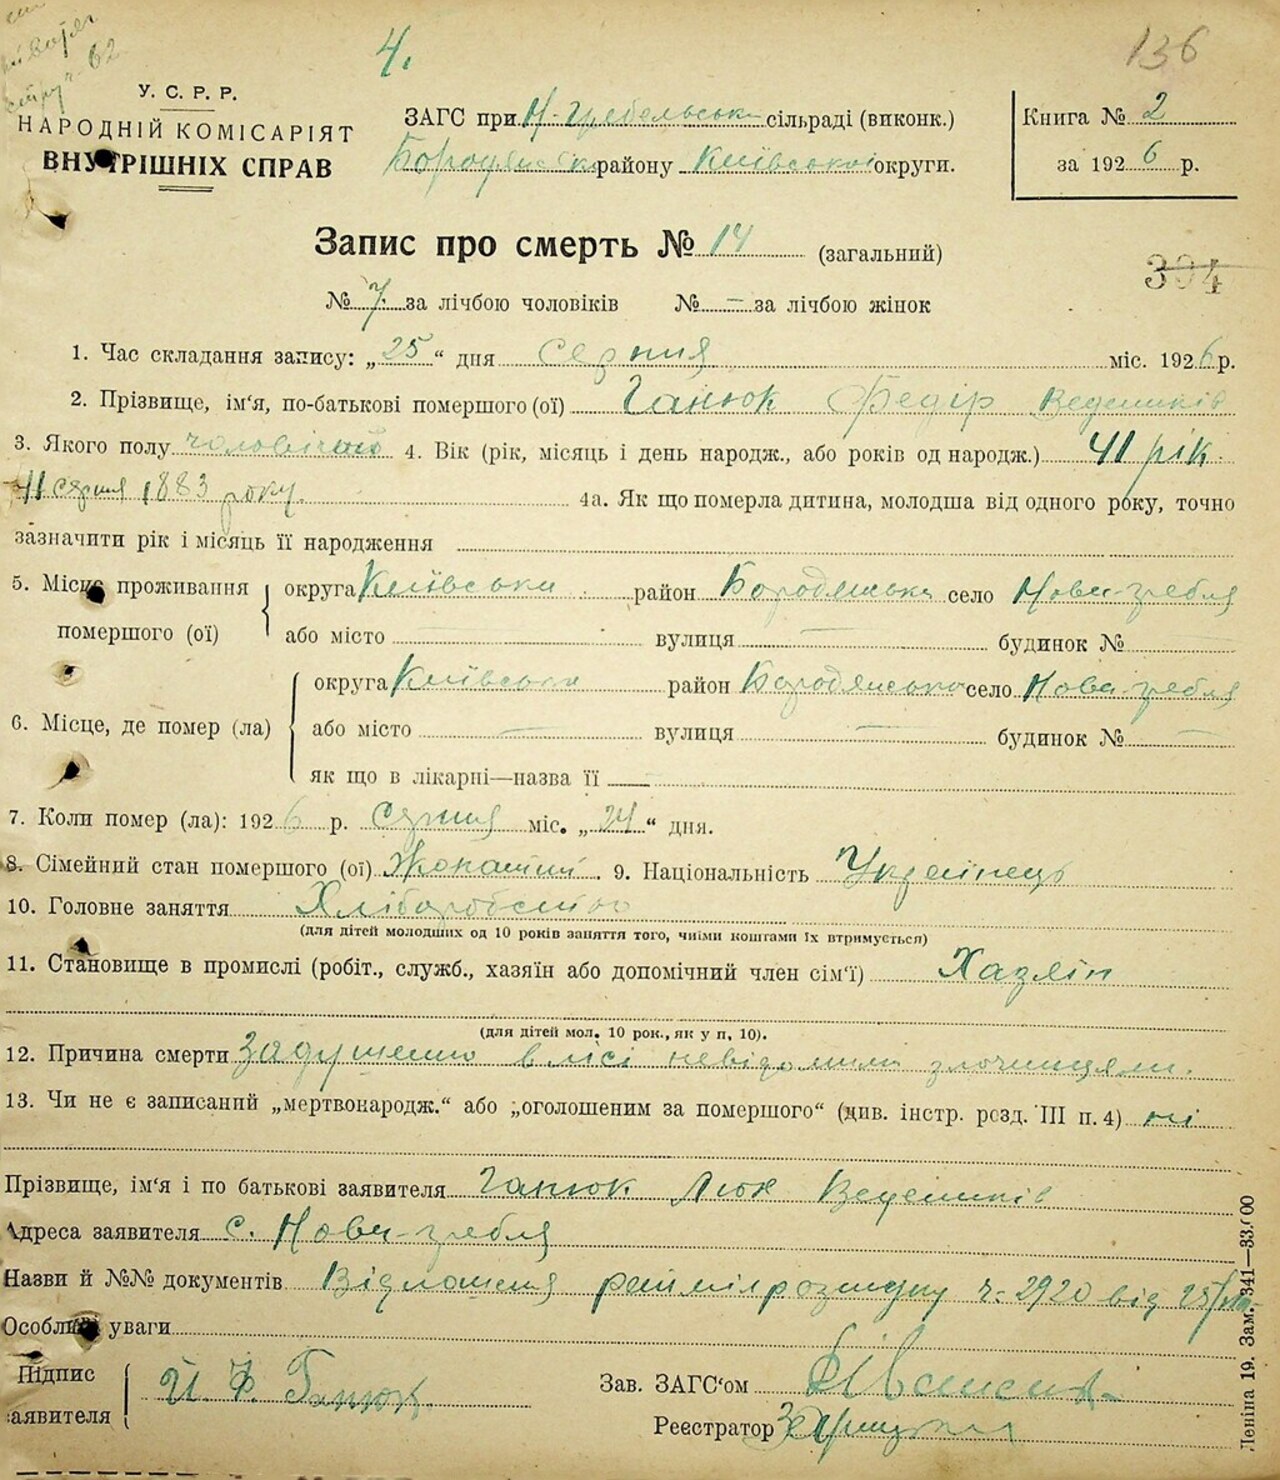 4.
136
У. С. Р. Р.
НАРОДНІЙ КОМІСАРІЯТ
ВНУТРІШНІХ СПРАВ
ЗАГС при Н-Гребельськ сільраді (виконк.)
Бородянськ району Київської округи.
Книга № 2
за 1926 р.
Запис про смерть № 14 (загальний)
394
№ 7 за лічбою чоловіків № — за лічбою жінок
1. Час складання запису: „25“ дня серпня міс. 1926 р.
2. Прізвище, ім'я, по-батькові помершого (ої) Ганюк Федір
3. Якого полу чоловічого 4. Вік (рік, місяць і день народж., або років од народж.) 41 рік.
11 серпня 1883 року. 4а. Як що померла дитина, молодша від одного року, точно
зазначити рік і місяць її народження
5. Місце проживання помершого (ої) округа Київська район Бородянськ село Нова-гребля
або місто — вулиця — будинок № —
6. Місце, де помер (ла) округа Київська район Бородянсько село Нова-гребля
або місто — вулиця — будинок № —
як що в лікарні—назва її —
7. Коли помер (ла): 1926 р. серпня міс. „24“ дня.
8. Сімейний стан помершого (ої) Жонатий. 9. Національність Українець
10. Головне заняття Хліборобство
(для дітей молодших од 10 років заняття того, чиїми коштами їх втримується)
11. Становище в промислі (робіт., служб., хазяїн або допомічний член сім'ї) Хазяїн
(для дітей мол. 10 рок., як у п, 10).
12. Причина смерти задушено в лісі невідомими злочинцями.
13. Чи не є записаний „мертвонародж.“ або „оголошеним за помершого“ (див. інстр. розд. III п. 4) ні
Прізвище, ім'я і по батькові заявителя Ганюк
Адреса заявителя с. Нова-гребля
Назви й №№ документів Відношення райміліррозшуку ч. 2920 від 25/VIII
Особливі уваги
Підпис заявителя Ганюк
Зав. ЗАГС'ом
Реєстратор
Леніна 19. Зам. 341—33.000